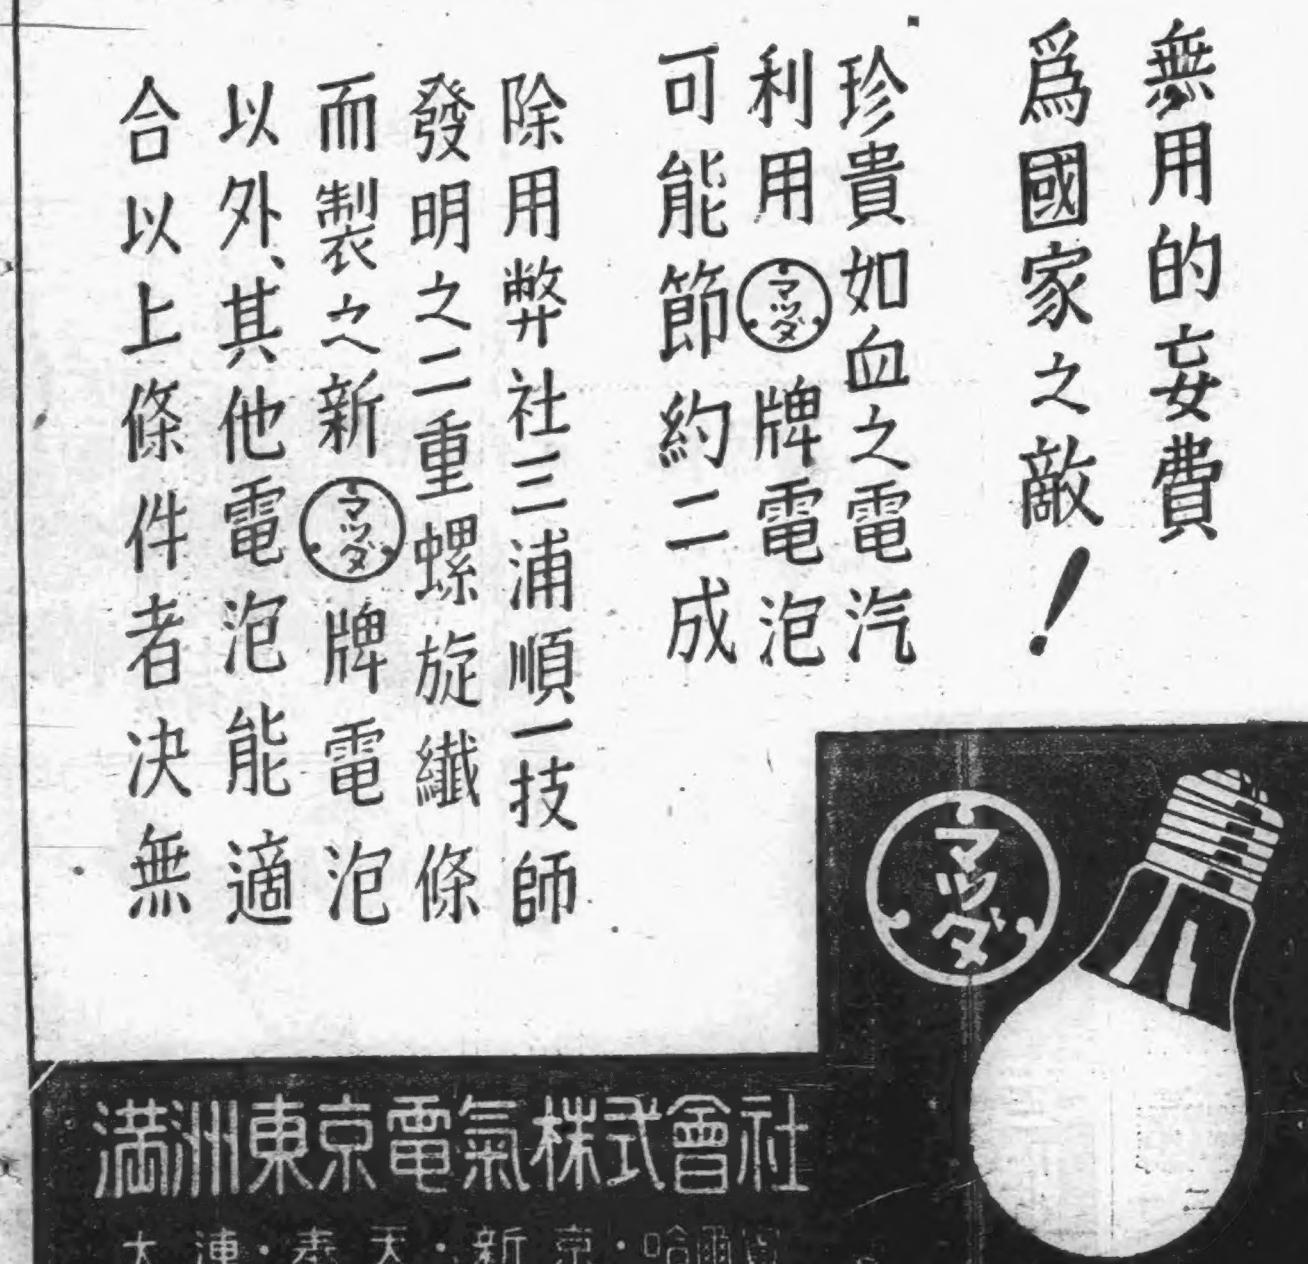 無用的妄費
爲國家之敵！
珍貴如血之電汽
利用マツダ牌電泡
可能節約二成
除用弊社三浦順一技師
發明之二重螺旋纖條
而製之新マツダ牌電泡
以外、其他電泡能適
合以上條件者決無
マツダ
満洲東京電氣株式會社
大連・奉天・新京・哈爾賓